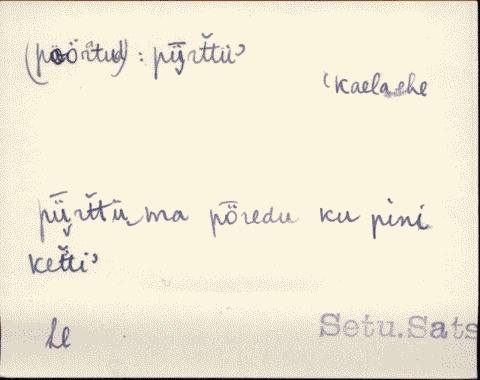 (pöörtud) : pǖrt̆tüʾ
ʻkaelaehe
pǖrt̆tü ma pȫredu ku pini
ket̆tiʾ
Le
Setu.Sats